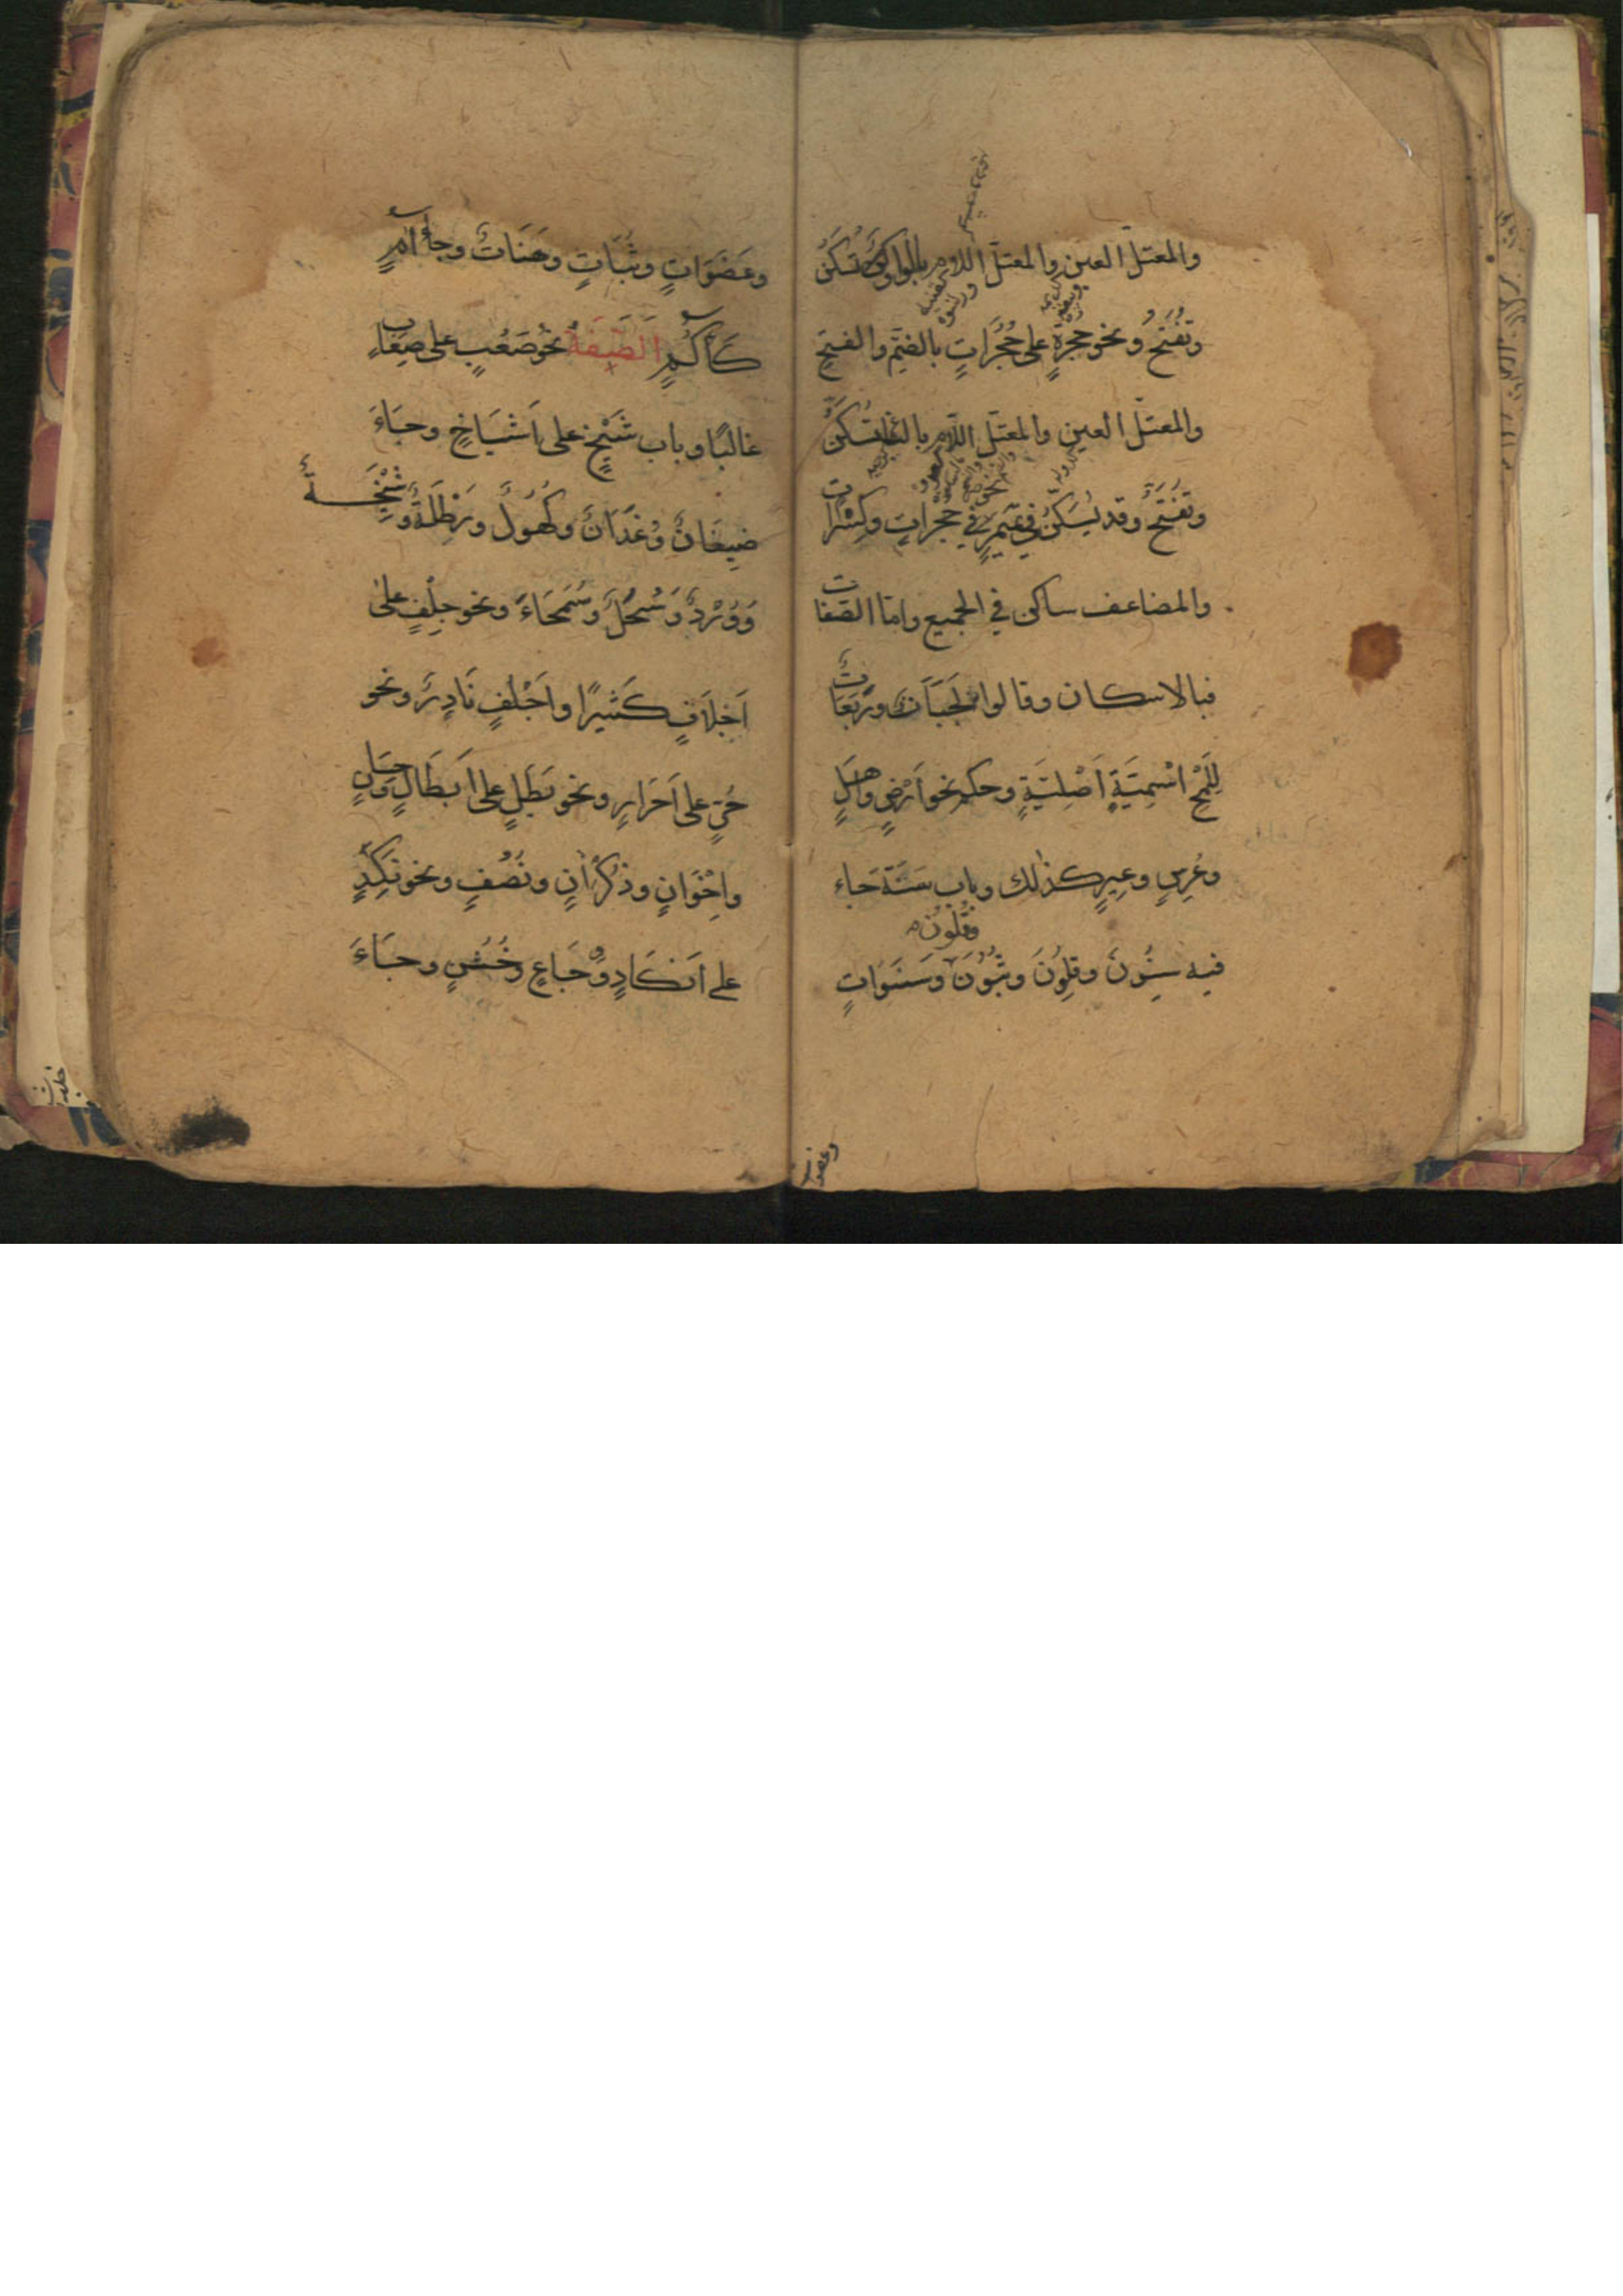 والمعتلّ العين والمعتلّ اللام بالواو تُسَكَّنُ
وتُفْتَحُ ونحو حجرةٍ على حُجُرَاتٍ بالضمّ والفتح
والمعتلّ العين والمعتلّ اللّام بالياء تُسَكَّنُ
وتُفْتَحُ وقد يُسَكَّنُ في تميمٍ في حجراتٍ وكِسْرَات
والمضاعف ساكن في الجميع وامّا الصّفات
فبالاسكان وقالوا لَجَبَاتٌ ورَبَعَاتٌ
لِلَمْحِ اسْمِيَّةٍ اَصْلِيَّةٍ وحكم نحو اَرْضٍ واَهْلٍ
وعُرْسٍ وعِيرٍ كذٰلك وباب سَنَة جاء
وقُلُونَ
فيه سِنُونَ وقِلُونَ وثُبُونَ وسَنَوَاتٍ
وعضوات
وعَضَوَاتٍ وثُبَاتٍ وهَنَاتٌ وجاء آمٍ
كَآكُمٍ الصِّفَةُ نحو صَعْبٍ على صِعَابٍ
غالبًا وباب شَيْخٍ على اَشْيَاخٍ وجَاءَ
ضِيفَانٌ ووُغْدَانٌ وكُهُولٌ ورِطَلَةٌ وشِيْخَةٌ
وَوُرْدٌ وَسُحُلٌ وسُمَحَاءُ ونحو جِلْفٍ على
اَجْلَافٍ كَثِيرًا واَجْلُفٍ نَادِرٌ ونحو
حُرٍّ على اَحْرَارٍ ونحو بَطَلٍ على اَبْطَالٍ وحِسَانٍ
واِخْوَانٍ وذُكْرَانٍ ونُصُفٍ ونحو نَكِدٍ
على اَنْكَادٍ ووِجَاعٍ وخُشُنٍ وجَاءَ